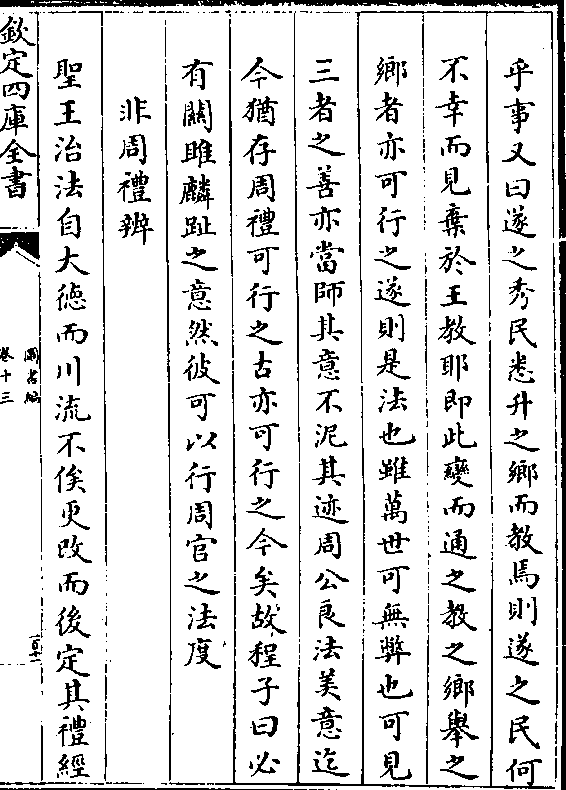 乎事又曰遂之秀民悉升之鄉而教焉則遂之民何
不幸而見棄於王教耶即此變而通之教之鄉舉之
鄉者亦可行之遂則是法也雖萬世可無弊也可見
三者之善亦當師其意不泥其迹周公良法美意迄
今猶存周禮可行之古亦可行之今矣故程子曰必
有關雎麟趾之意然後可以行周官之法度
非周禮辨
聖王治法自大德而川流不俟更改而後定其禮經
欽定四庫全書
圖書編
卷十三